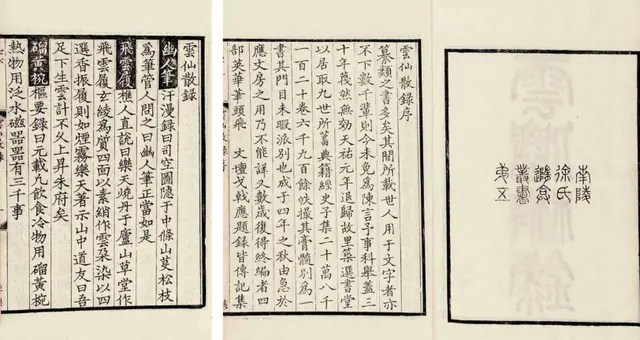 南陵
徐氏
隨盦
叢書
弟五
雲仙散錄序
纂類之書多矣其間所載世人用于文字者亦
不下數千輩則今未免為陳言予事科舉蓋三
十年蓯然無効天祐元年退歸故里築選書堂
以居取九世所蓄典籍經史子集二十萬八千
一百二十卷六千九百餘帙撮其膏髓別為一
書其門目未暇派別也成于四年之秋由急於
應文房之用乃不能詳又數歲復得終編者四
部英華筆頭飛 文壇戈戟應題錄皆傳記集
雲仙散錄
幽人筆 汗漫錄曰司空圖隱于中條山芟松枝
為筆管人問之曰幽人筆正當如是
飛雲履 樵人直說曰樂天燒丹于廬山草堂作
飛雲履玄綾為質四面以素綃作雲朵染以四
選香振履則如煙霧樂天著示山中道友曰吾
足下生雲計不久上昇朱府矣
磂黃椀 樞要錄曰元載凡飲食冷物用磂黃椀
熱物用泛水磁器器有三千事